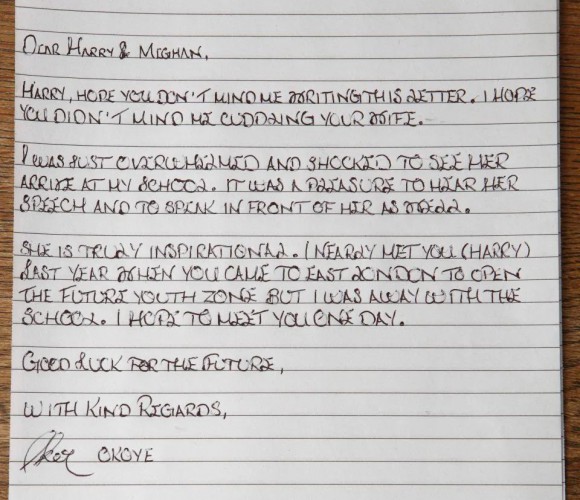 DEAR HARRY & MEGHAN,
HARRY, HOPE YOU DON'T MIND ME WRITING THIS LETTER. I HOPE
YOU DIDN'T MIND ME CUDDLING YOUR WIFE.
I WAS JUST OVERWHELMED AND SHOCKED TO SEE HER
ARRIVE AT MY SCHOOL. IT WAS A PLEASURE TO HEAR HER
SPEECH AND TO SPEAK IN FRONT OF HER AS WELL.
SHE IS TRULY INSPIRATIONAL. I NEARLY MET YOU (HARRY)
LAST YEAR WHEN YOU CAME TO EAST LONDON TO OPEN
THE FUTURE YOUTH ZONE BUT I WAS AWAY WITH THE
SCHOOL. I HOPE TO MEET YOU ONE DAY.
GOOD LUCK FOR THE FUTURE,
WITH KIND REGARDS,
OKOYE